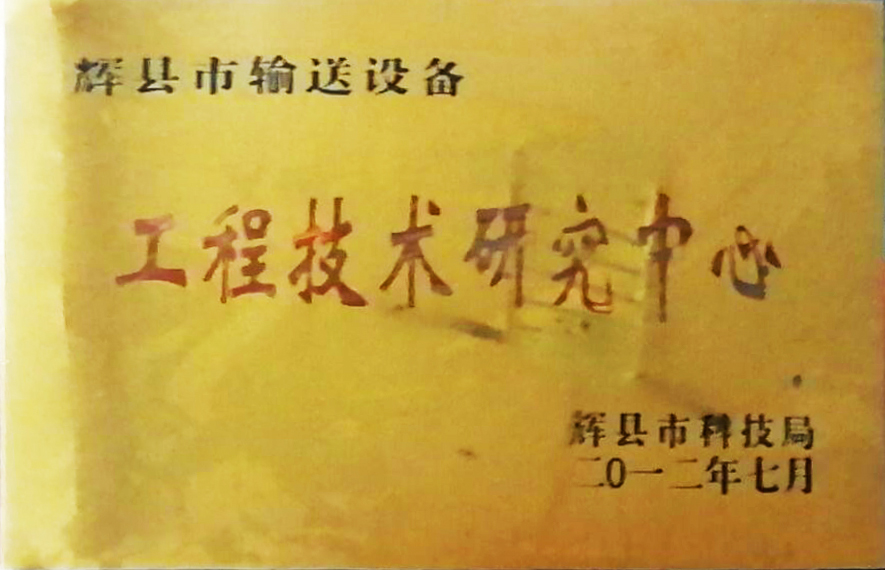 辉县市输送设备
工程技术研究中心
辉县市科技局
二0一二年七月